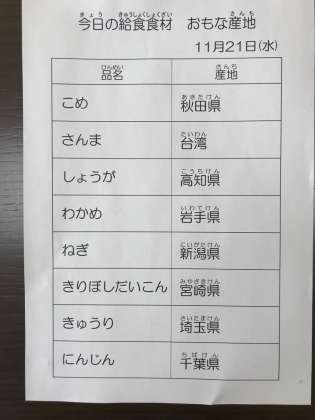 今日の給食食材 おもな産地
11月21日(水)
品名 産地
こめ 秋田県
さんま 台湾
しょうが 高知県
わかめ 岩手県
ねぎ 新潟県
きりぼしだいこん 宮崎県
きゅうり 埼玉県
にんじん 千葉県